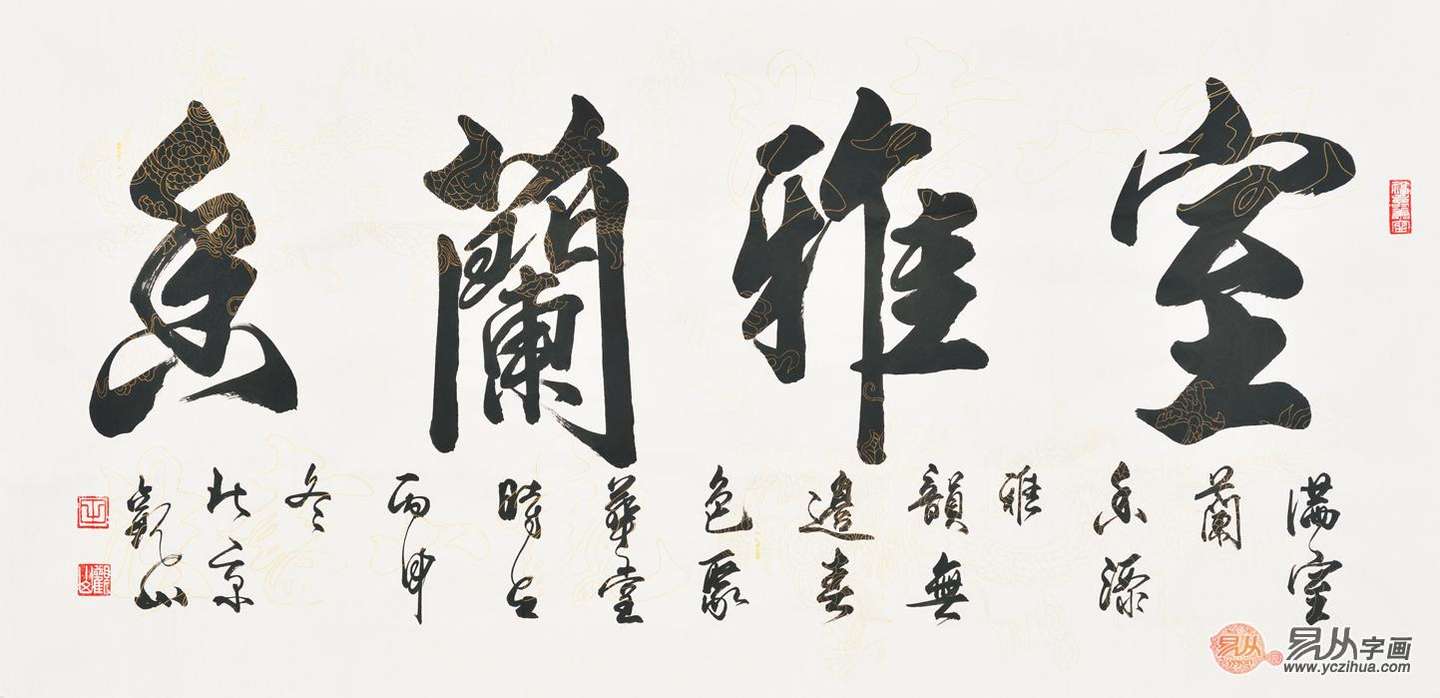 室雅蘭香
满室
蘭
香漂
雅
韻無
邊春
色聚
華堂
時在
丙申
冬
北京
觀山
易从字画
www.yczihua.com